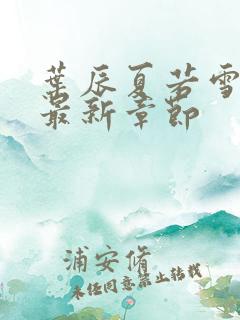 葉辰夏若雪
最新章節
浦安脩
未经同意禁止转载